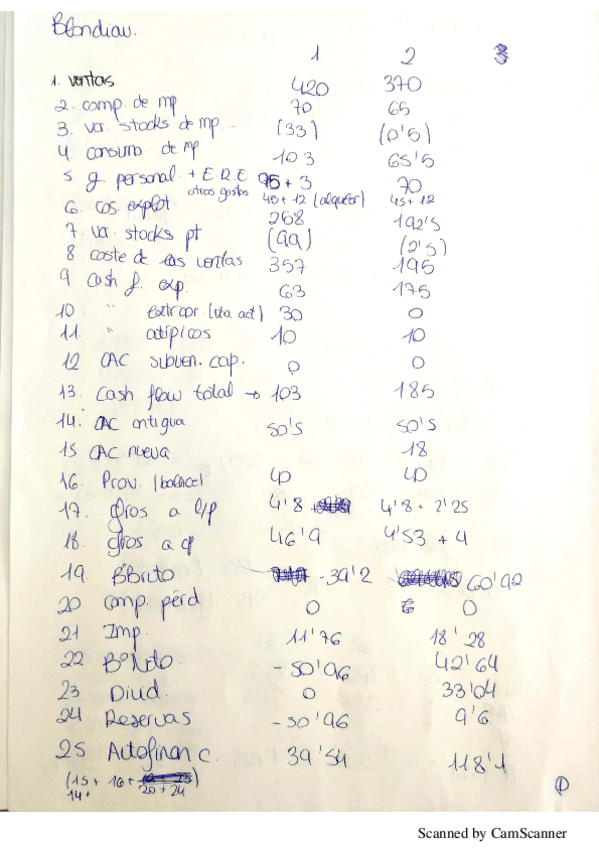 Blondiau.
1 2 3
1. ventas 420 370
2. comp. de mp 70 65
3. var. stocks de mp (33) (0'5)
4 consumo de mp 103 65'5
5 g. personal + E.R.E 95 + 3 70
6. cos. explot. otros gastos 40 + 12 (alquiler) 45 + 12
268 192'5
7. var. stocks pt (99) (2'5)
8 coste de las ventas 357 195
9 cash f. exp. 63 175
10. " extraor. (vta act) 30 0
11. " atípicos 10 10
12 CAC subven. cap. 0 0
13. cash flow total → 103 185
14. CAC antigua 50'5 50'5
15 CAC nueva 18
16. Prov. (balance) 40 40
17. gfros a l/p 4'8 + 4'8 + 2'25
18. gfros a cp 46'9 4'53 + 4
19. BºBruto -39'2 60'92
20 comp. pérd 0 0
21 Imp. 11'76 18'28
22 BºNeto -50'96 42'64
23 Divid. 0 33'04
24 Reservas -50'96 9'6
25 Autofinanc. 39'54 118'1
(15 + 16 +
14 + 20 + 24)
1
Scanned by CamScanner